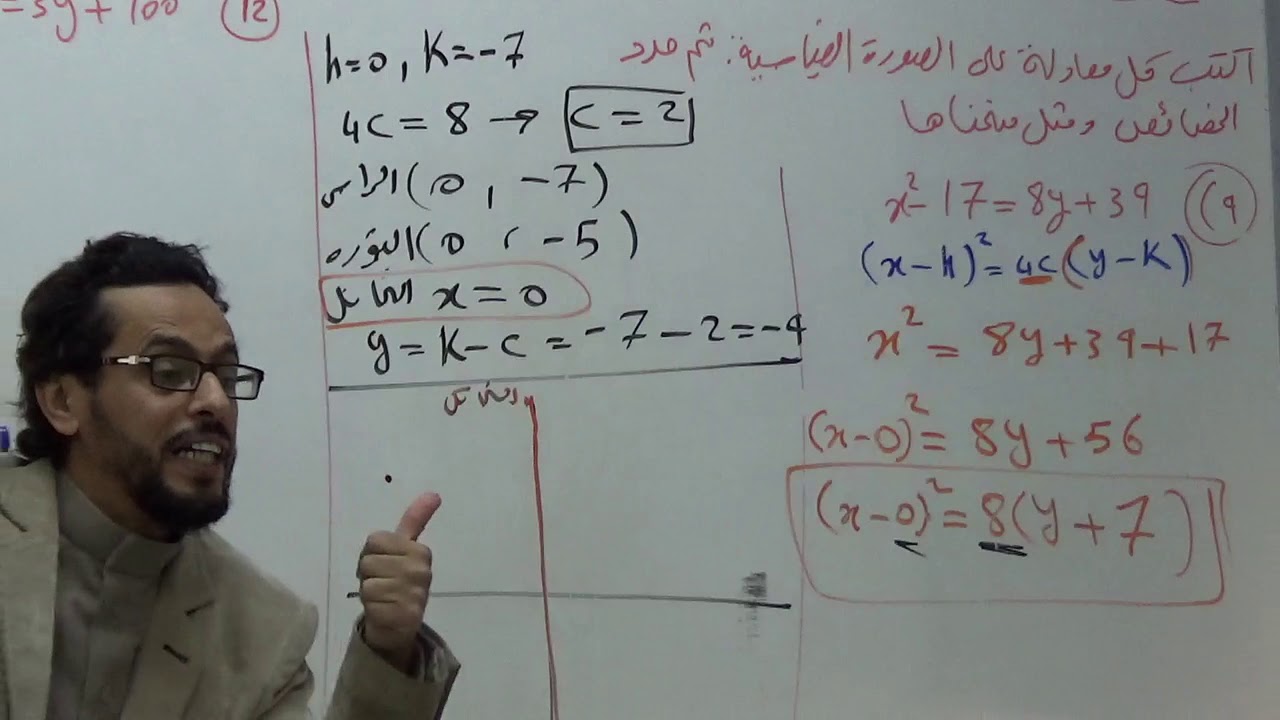 اكتب كل معادلة على الصورة القياسية: ثم حدد
الخصائص ومثل منحناها
9)
x² - 17 = 8y + 39
(x - h)² = 4c(y - k)
x² = 8y + 39 + 17
(x - 0)² = 8y + 56
(x - 0)² = 8(y + 7)
h = 0, k = -7
4c = 8 → c = 2
الراس (0, -7)
البؤره (0, -5)
x = 0
y = k - c = -7 - 2 = -9
= 3y + 100 (12)